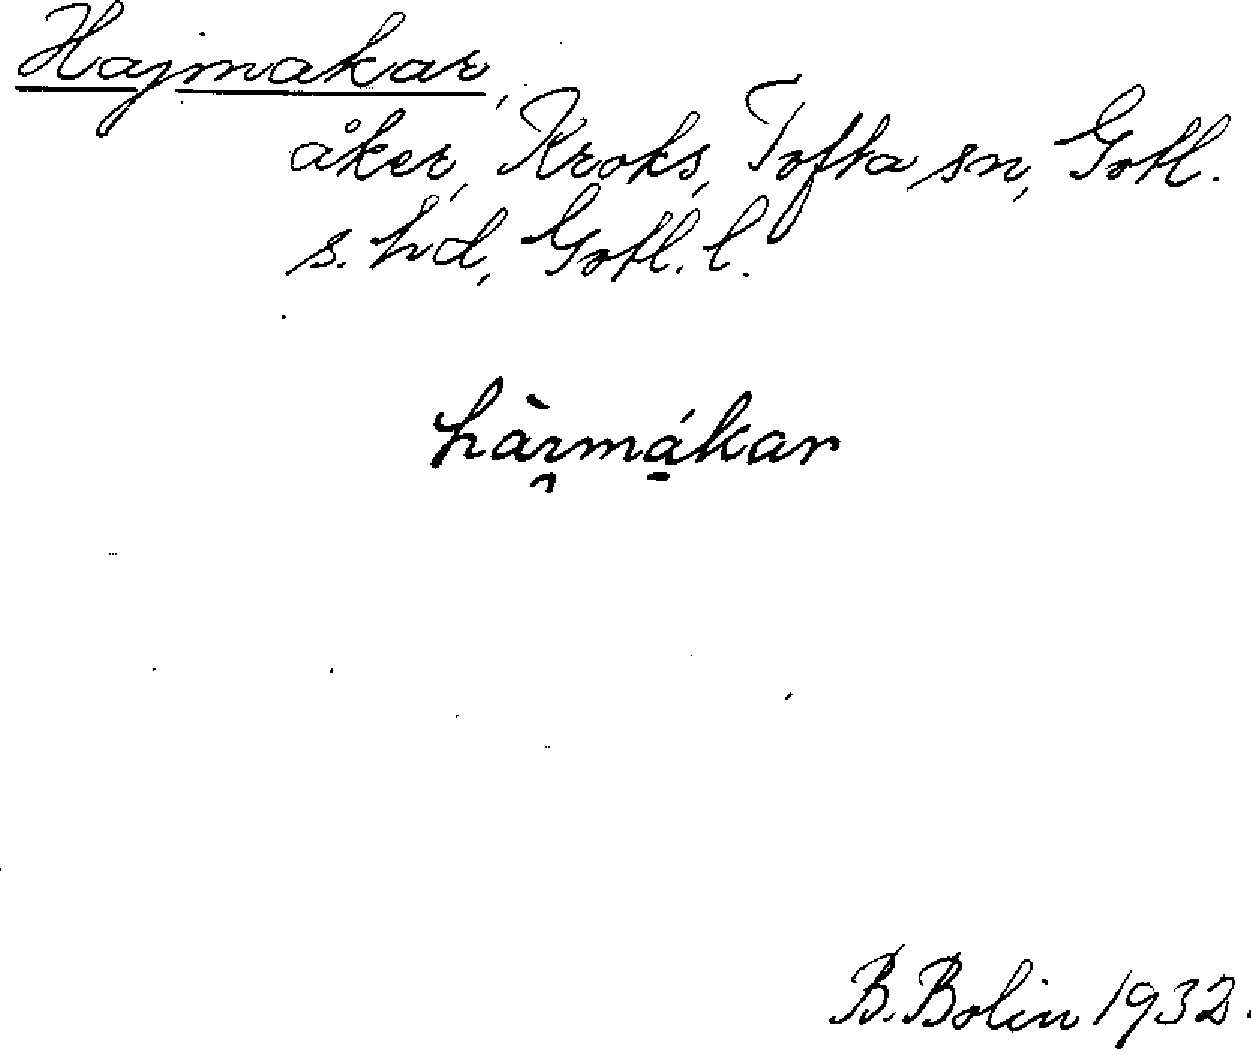 Hajmakar,
åker, Kroks, Tofta sn, Gotl.
s. hd, Gotl. l.
hàı̯má̱kar
B. Bolin 1932.